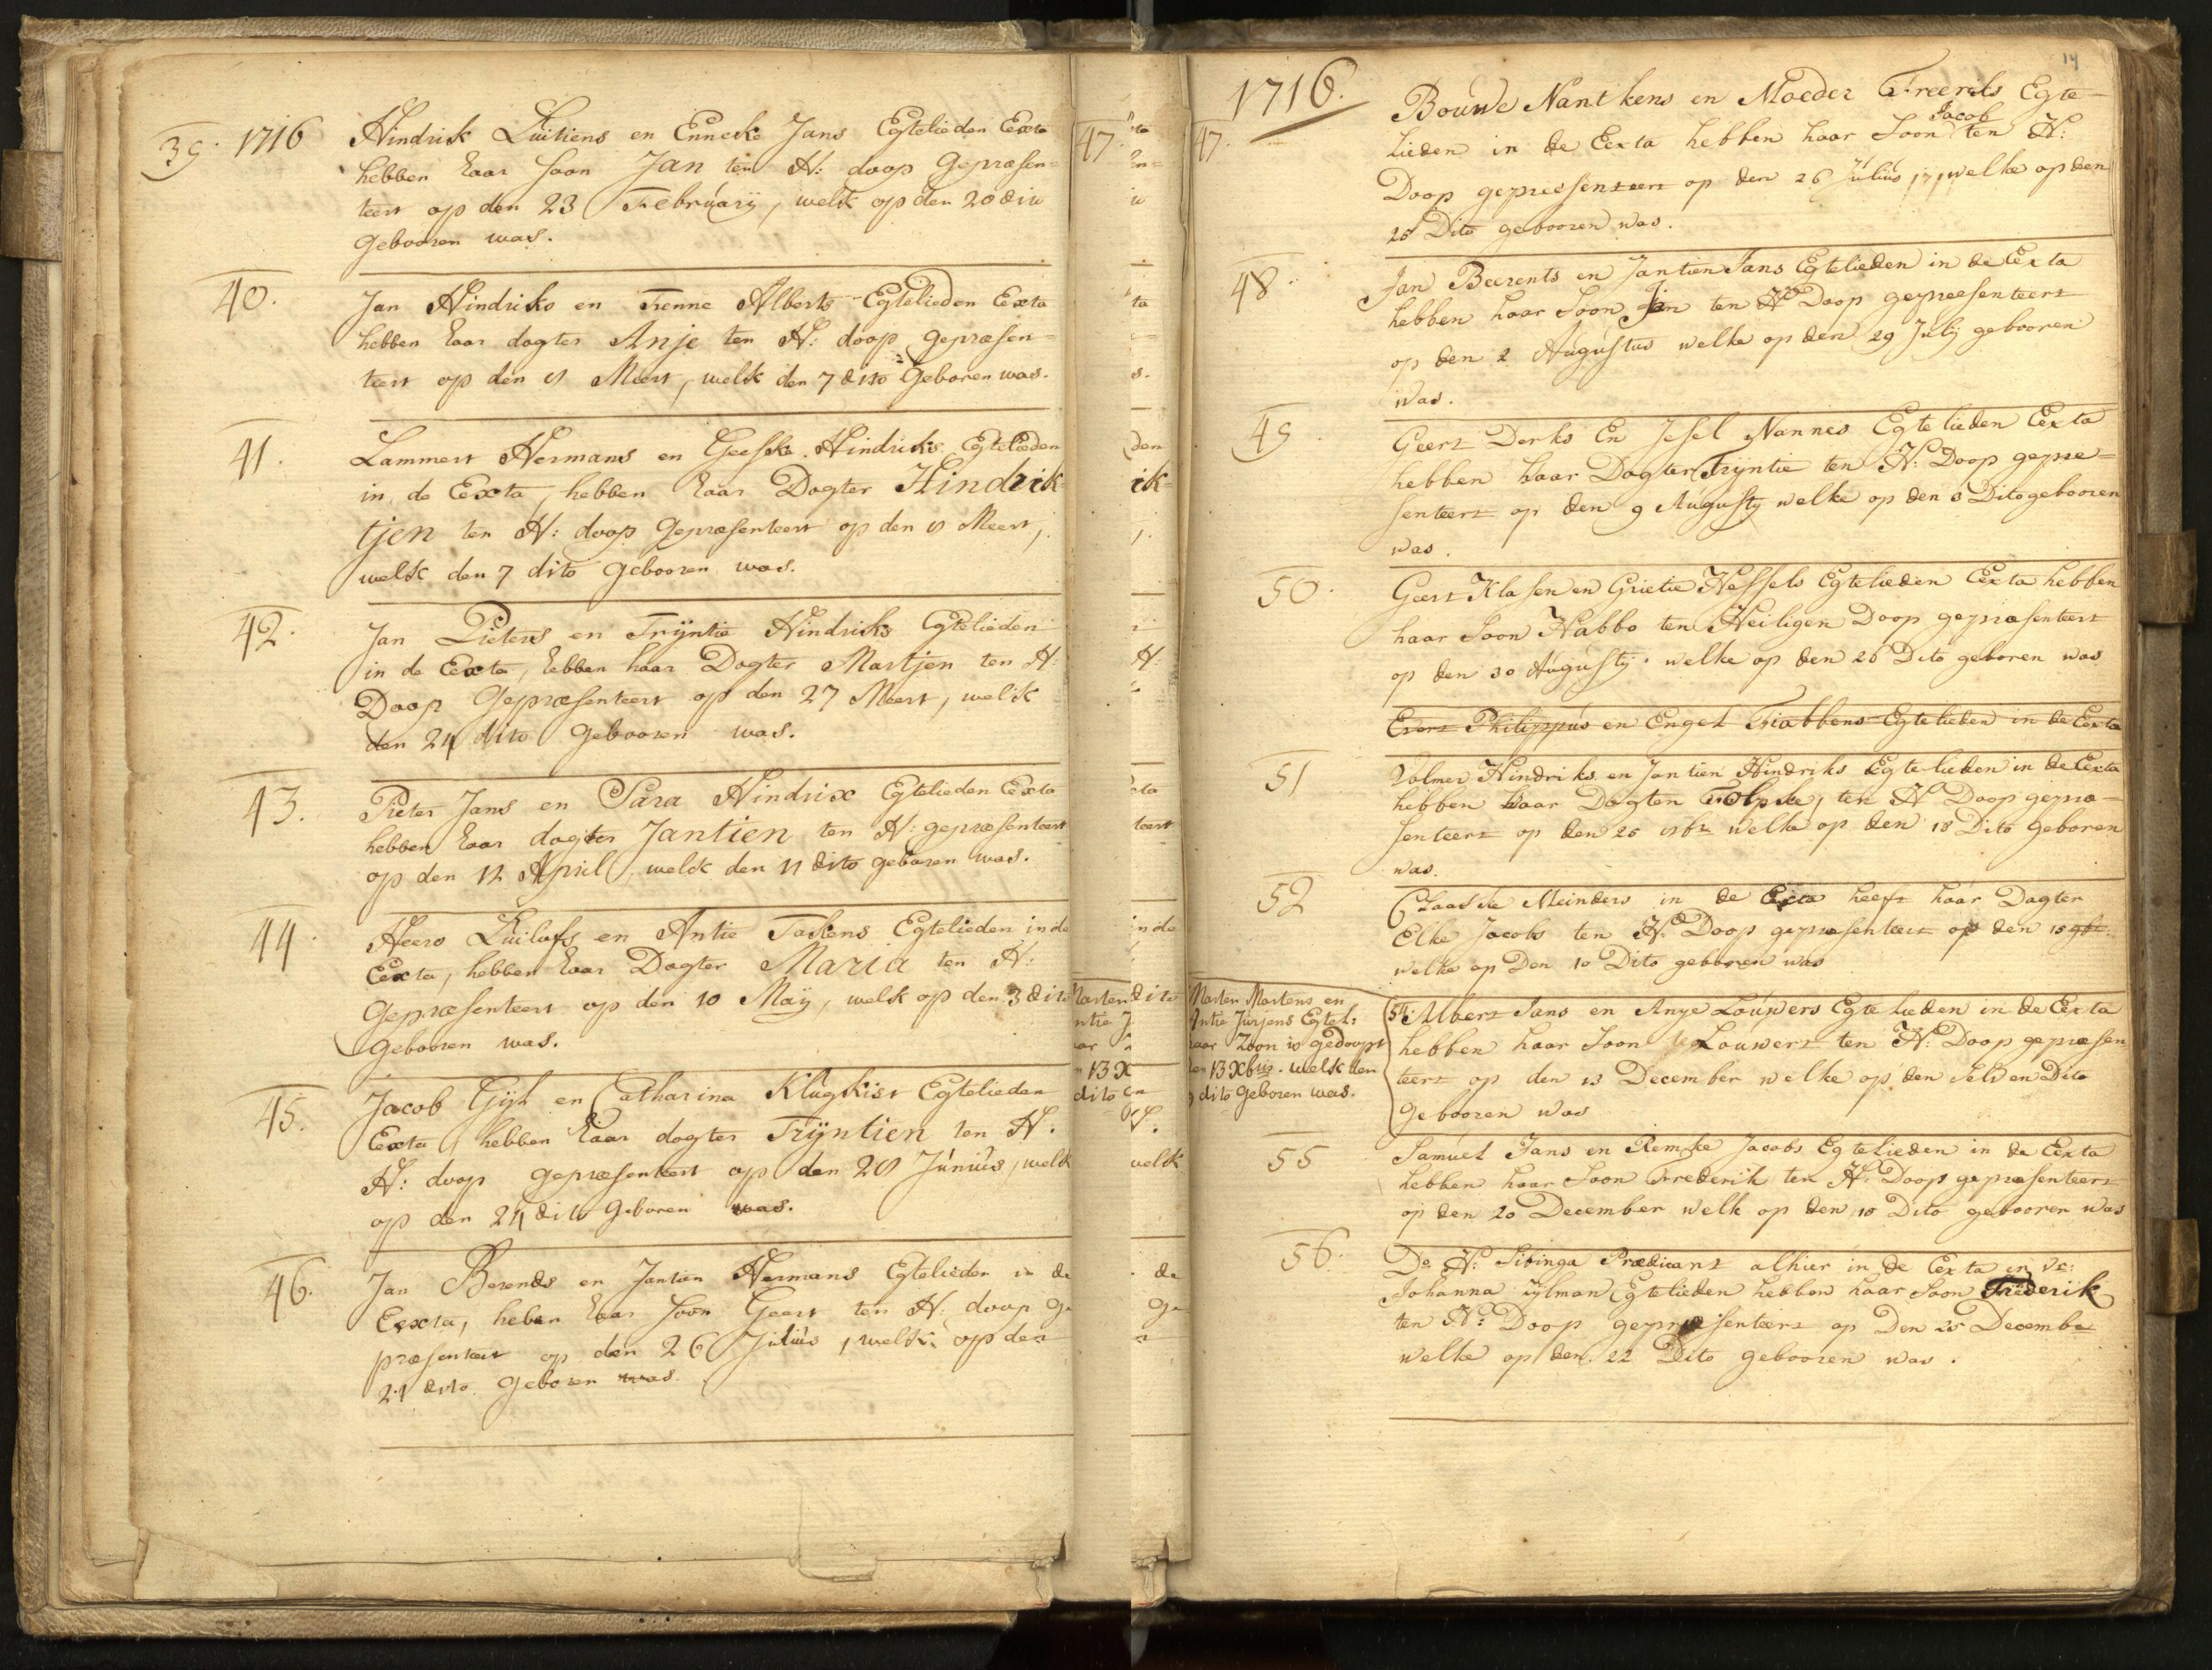 39. 1716 Hindrik Luitiens en Enneke Jans Egtelieden Eexta
hebben haar soon Jan ten H: doop gepræsen=
teert op den 23 February, welk op den 20 dito
gebooren was.
40. Jan Hindriks en Trenne Alberts Egtelieden Eexta
hebben haar dogter Anje ten H: doop gepræsen=
teert op den 8 Meert, welk den 7 dito geboren was.
41. Lammert Hermans en Geeske Hindriks Egtelieden
in de Eexta, hebben haar Dogter Hindrik=
tjen ten H: doop gepræsenteert op den 8 Meert,
welk den 7 dito gebooren was.
42. Jan Pieters en Trijntie Hindriks Egtelieden
in de Eexta, hebben haar Dogter Martjen ten H:
Doop gepræsenteert op den 27 Meert, welk
den 24 dito gebooren was.
43. Pieter Jans en Sara Hindrix Egtelieden Eexta
hebben haar dogter Jantien ten H: gepræsenteert
op den 12 April, welk den 11 dito geboren was.
44. Heero Luilofs en Antie Takens Egtelieden in de
Eexta, hebben haar Dogter Maria ten H:
gepræsenteert op den 10 Maij, welk op den 3 dito
gebooren was.
45. Jacob Gijl en Catharina Klugkist Egtelieden
Eexta hebben haar dogter Trijntien ten H.
H: doop gepræsenteert op den 28 Junius, welk
op den 24 dito geboren was.
46. Jan Berends en Jantien Hermans Egtelieden in de
Eexta, heben haar soon Geert ten H: doop ge
præsenteert op den 26 Julius, welk op den
21 dito geboren was.
14
1716.
47. Bouwe Nantkens en Moeder Freerks Egte-
lieden in de Eexta hebben haar Soon Jacob ten H:
Doop gepresenteert op den 26 Julius welke op den
25 Dito gebooren was.
48. Jan Beerents en Jantien Jans Egtelieden in de Eexta
hebben haar Soon Jan ten H Doop gepreesenteert
op den 2 Augustus welke op den 29 July gebooren
was.
49. Geert Derks En Jesel Nannes Egtelieden Eexta
hebben haar Dogter Trijntie ten H: Doop gepre=
senteert op den 9 Augusty welke op den 8 Dito gebooren
was.
50. Geert Klasen en Grietie Hessels Egtelieden Eexta hebben
haar Soon Habbo ten Heiligen Doop gepræsenteert
op den 30 Augustij welke op den 26 Dito geboren was
Evert Philippus en Engel Fiabbens Egtelieden in de Eexta
51 Volmer Hindriks en Jantien Hindriks Egtelieden in de Eexta
hebben haar Dogter Folpke, ten H Doop gepræ=
senteert op den 25 8br welke op den 18 Dito geboren
was.
52 Claaske Meinders in de Eexta heeft haar Dagter
Elke Jacobs ten H. Doop gepræsenteert op den 15 9br.
welke op Den 10 Dito geboren was
Marten Martens en
Antie Jurjens Egtel:
haar Zoon is gedoopt
den 13 Xbris. welk den
9 dito geboren was.
54. Albert Jans en Anje Louwers Egtelieden in de Eexta
hebben haar Soon Louwert ten H: Doop gepræsen
teert op den 13 December welke op den selven Dito
gebooren was
55 Samuel Jans en Remke Jacobs Egtelieden in de Eexta
hebben haar Soon Frederik ten H: Doop gepræsenteert
op den 20 December welk op den 18 Dito gebooren was
56. De H: Sibinga Prædicant alhier in de Eexta en
Johanna Zylman Egtelieden hebben haar Soon Frederik
ten H: Doop gepræsenteert op Den 25 December
welke op den 22 Dito gebooren was.